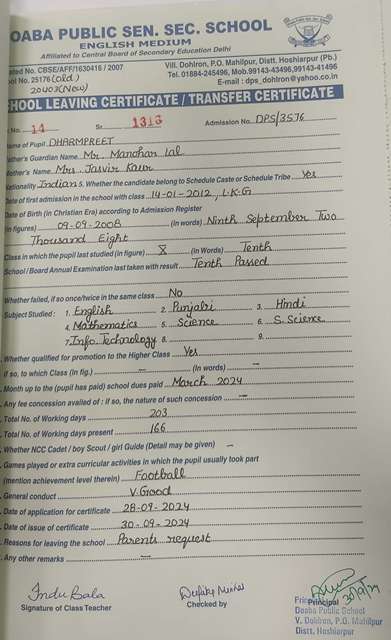 DOABA PUBLIC SEN. SEC. SCHOOL
ENGLISH MEDIUM
Affiliated to Central Board of Secondary Education Delhi
ated No. CBSE/AFF/1630416 / 2007
ol No. 25176 (Old)
20403 (New)
Vill. Dohlron, P.O. Mahilpur, Distt. Hoshiarpur (Pb.)
Tel. 01884-245496, Mob.99143-43496,99143-41496
E-mail : dps_dohlron@yahoo.co.in
HOOL LEAVING CERTIFICATE / TRANSFER CERTIFICATE
No. 14 Sr 1313 Admission No. DPS/3576
Name of Pupil DHARMPREET
ather's Guardian Name Mr. Manohar Lal
other's Name Mrs. Jasvir Kaur
Nationality Indian 5. Whether the candidate belong to Schedule Caste or Schedule Tribe Yes
Date of first admission in the school with class 14-01-2012, L.K.G
Date of Birth (in Christian Era) according to Admission Register
(in figures) 09-09-2008 (in words) Ninth September Two
Thousand Eight
Class in which the pupil last studied (in figure) X (in Words) Tenth
School / Board Annual Examination last taken with result Tenth Passed
Whether failed, if so once/twice in the same class No
Subject Studied : 1. English 2. Punjabi 3. Hindi
4. Mathematics 5. Science 6. S.Science
7. Info. Technology 8. 9.
Whether qualified for promotion to the Higher Class Yes
if so, to which Class (In fig.) — (In words) —
Month up to the (pupil has paid) school dues paid March 2024
Any fee concession availed of : if so, the nature of such concession —
Total No. of Working days 203
Total No. of Working days present 166
Whether NCC Cadet / boy Scout / girl Guide (Detail may be given) —
Games played or extra curricular activities in which the pupil usually took part
(mention achievement level therein) Football
General conduct V.Good
Date of application for certificate 28-09-2024
Date of issue of certificate 30-09-2024
Reasons for leaving the school Parents request
Any other remarks —
Indu Bala
Signature of Class Teacher
Checked by
Principal
30/9/24
Doaba Public School
V. Dohlron, P.O. Mahilpur
Distt. Hoshiarpur